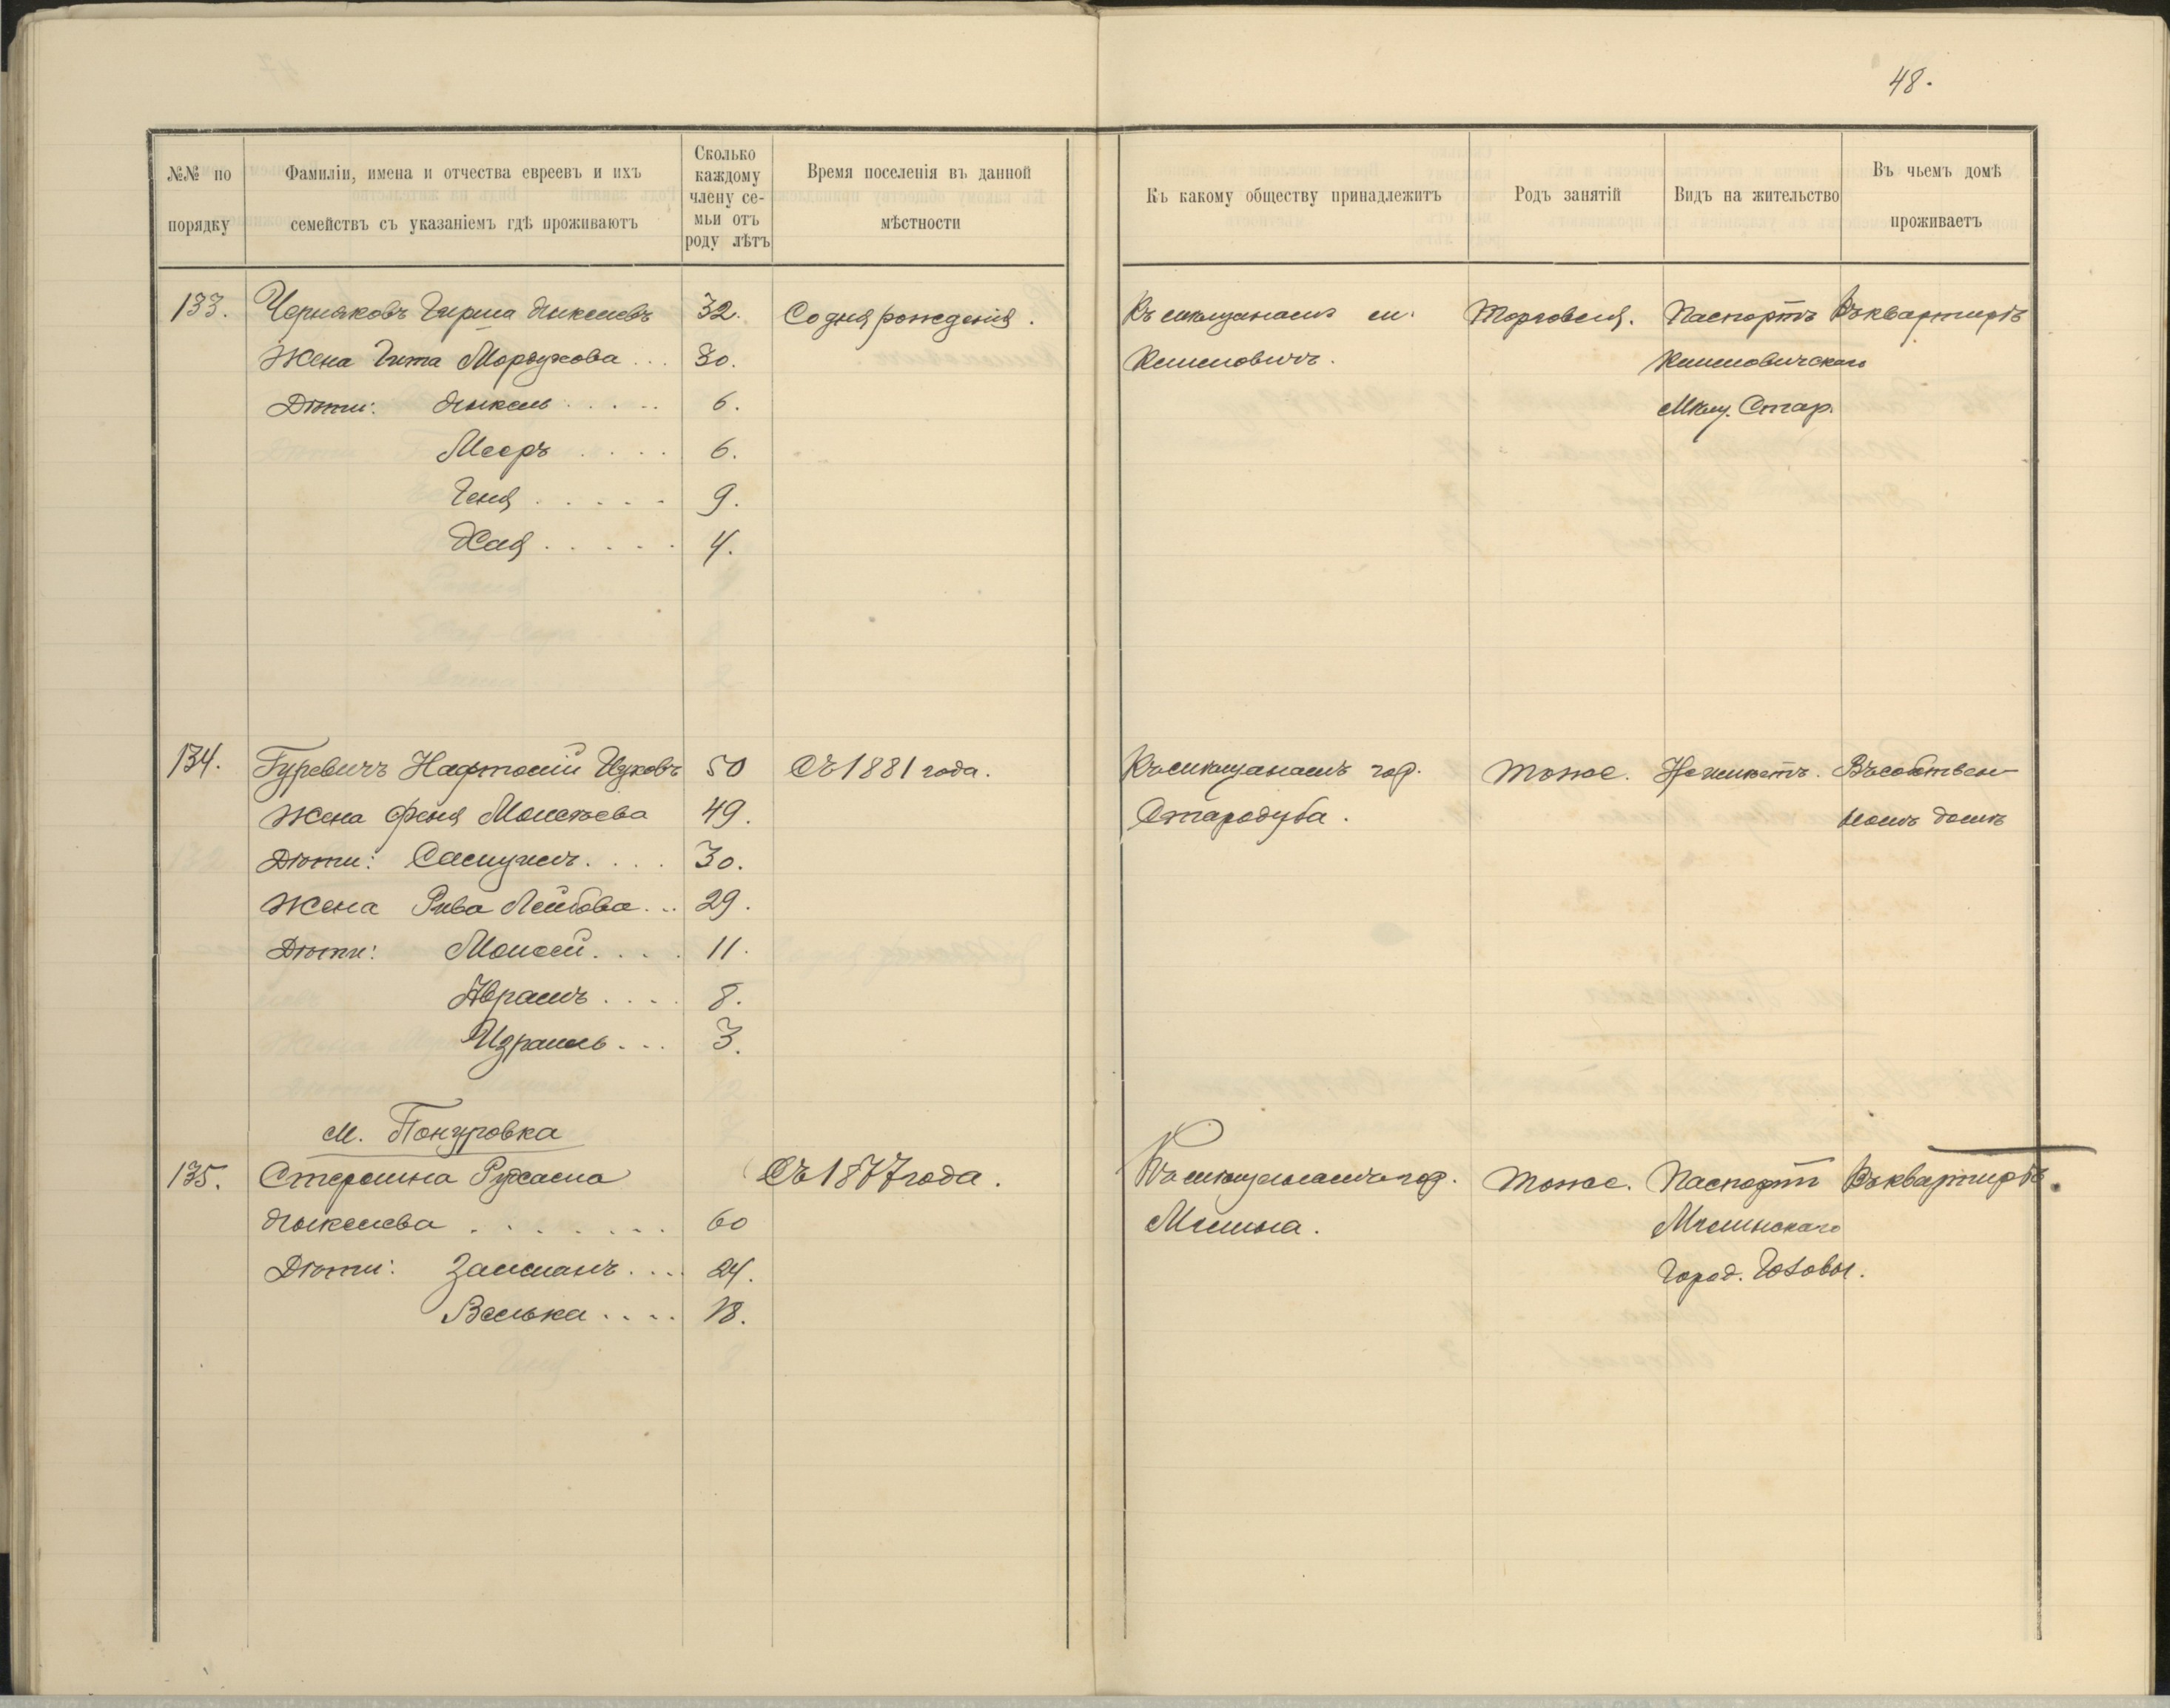 48.
№№ по порядку
Фамиліи, имена и отчества евреевъ и ихъ семействъ съ указаніемъ гдѣ проживаютъ
Сколько каждому члену се-мьи отъ роду лѣтъ
Время поселенія въ данной мѣстности
Къ какому обществу принадлежитъ
Родъ занятій
Видъ на жительство
Въ чьемъ домѣ проживаетъ
133. Черняковъ Гирша 32. Со дня рожденія. Къ мѣщанамъ м. Торговля. Паспортъ Въ квартирѣ
Жена Гита Мордухова... 30. Климовичъ. Климовичскаго
Дѣти: ..... 6. Мѣщ. Стар.
Мееръ .... 6.
Геня ..... 9.
Хая ..... 4.
134. Гуревичъ Нафтолій Ицковъ 50 Съ 1881 года. Къ мѣщанамъ гор. Тоже. Не имѣетъ. Въ собствен-
Жена Феня Монсѣева 49. Стародуба. номъ домѣ
Дѣти: Самуилъ.... 30.
Жена Рива Лейбова... 29.
Дѣти: Моисей.... 11.
Абрамъ.... 8.
Израиль... 3.
м. Понуровка
135. Стеркина Съ 1877 года. Къ мѣщанамъ гор. Тоже. Паспортъ Въ квартирѣ.
....... 60 Мглина. Мглинскаго
Дѣти: Залманъ.... 24. Город.
Велька.... 18.